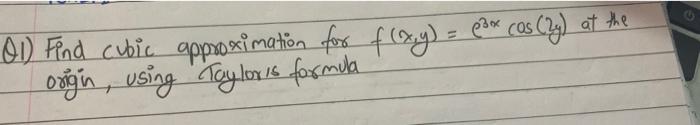 Q1) Find cubic approximation for f(x,y) = e^{3x} cos(2y) at the
origin, using Taylor's formula